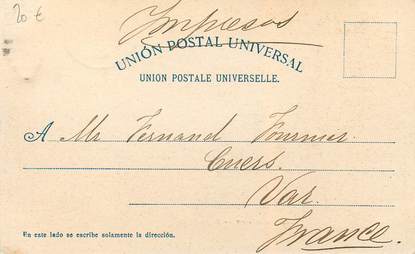 20 €
Impresos
UNIÓN POSTAL UNIVERSAL
UNION POSTALE UNIVERSELLE.
A Mr Fernand Fournier.
Cuers.
Var.
France.
En este lado se escribe solamente la dirección.